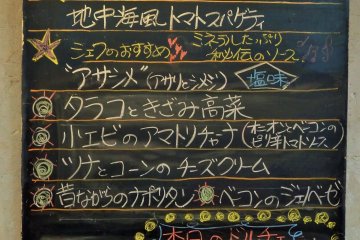 地中海風トマトスパゲティ
シェフのおすすめ ミネラルたっぷり
秘伝のソース
"アサシメ"(アサリとシメジ) 塩味
タラコときざみ高菜
小エビのアマトリチャーナ(オニオンとベーコンの
ピリ辛トマトソース)
ツナとコーンのチーズクリーム
昔ながらのナポリタン ベーコンのジェノベーゼ
本日のドルチェ